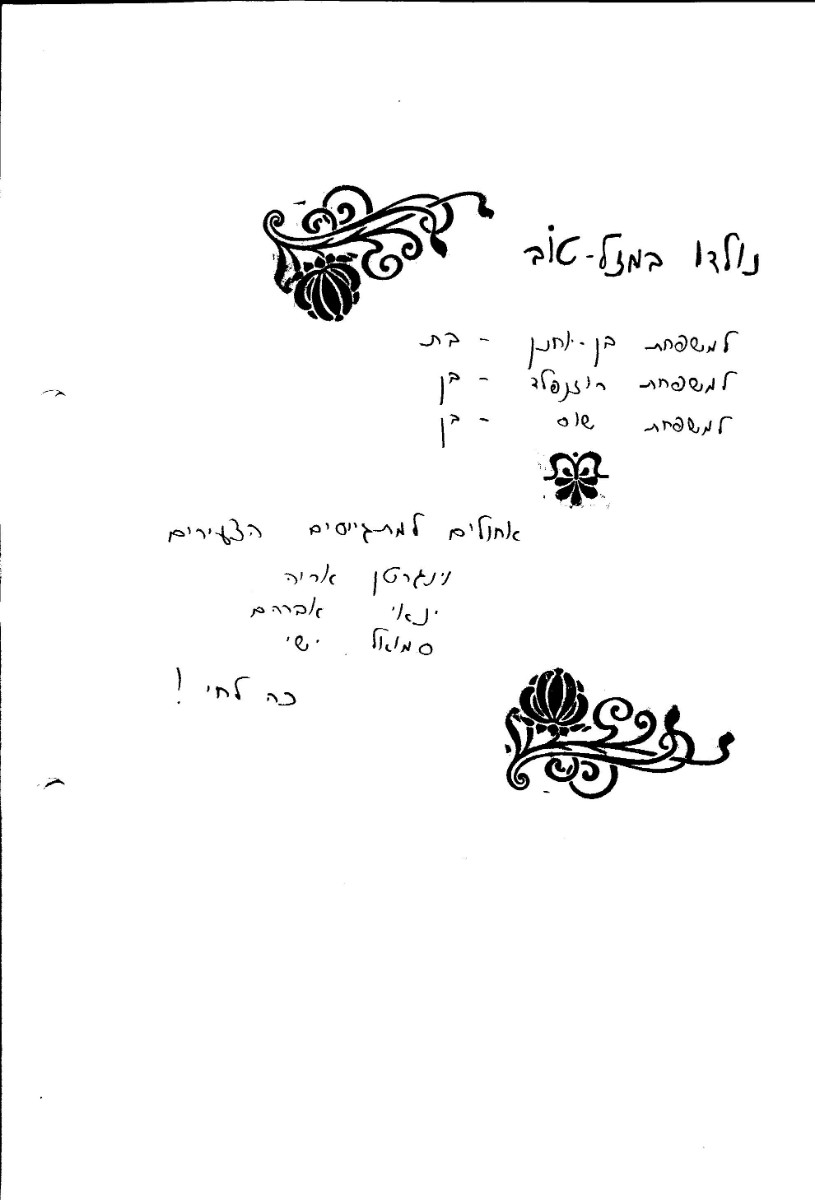 נולדו במזל-טוב
למשפחת בן-יוחנן - בת
למשפחת רוזנפלד - בן
למשפחת שוס - בן
איחולים למתגייסים הצעירים
וינגרטן אריה
ינאי אברהם
סמואל ישי
כה לחי!